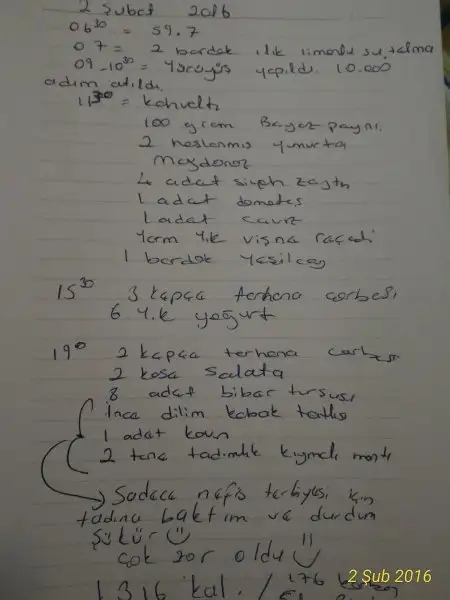 2 Şubat 2016
06³⁰ = 59.7
07 = 2 bardak ılık limonlu su, elma
09-10³⁰ = Yürüyüş yapıldı. 10.000
adım atıldı.
11³⁰ = kahvaltı
100 gram Beyaz paynir
2 haslanmış yumurta
maydonoz
4 adat siyah zaytin
1 adat domates
1 adat caviz
Yarım Y.k vişna raçali
1 bardak Yeşilçay
15³⁰ 3 kapça tarhana çorbası
6 Y.k yoğurt
19⁰ 2 kapça tarhana çorbası
2 kasa Salata
8 adat bibar turşusu
İnca dilim kabak tatlısı
1 adat kavun
2 tana tadımlık kıymalı mantı
Sadaca nafis tarbiyası için
tadına baktım va durdum
Şükür
çok zor oldu
1316 kal. / 176
2 Şub 2016